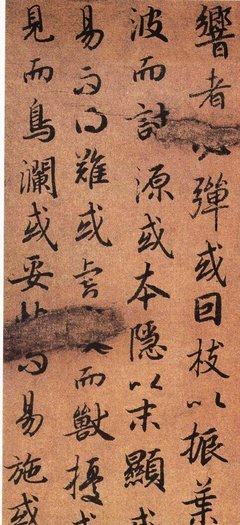 響者必彈或因枝以振葉
波而討源或本隱以末顯或
易而得難或虎而獸擾或
見而鳥瀾或妥而易施或